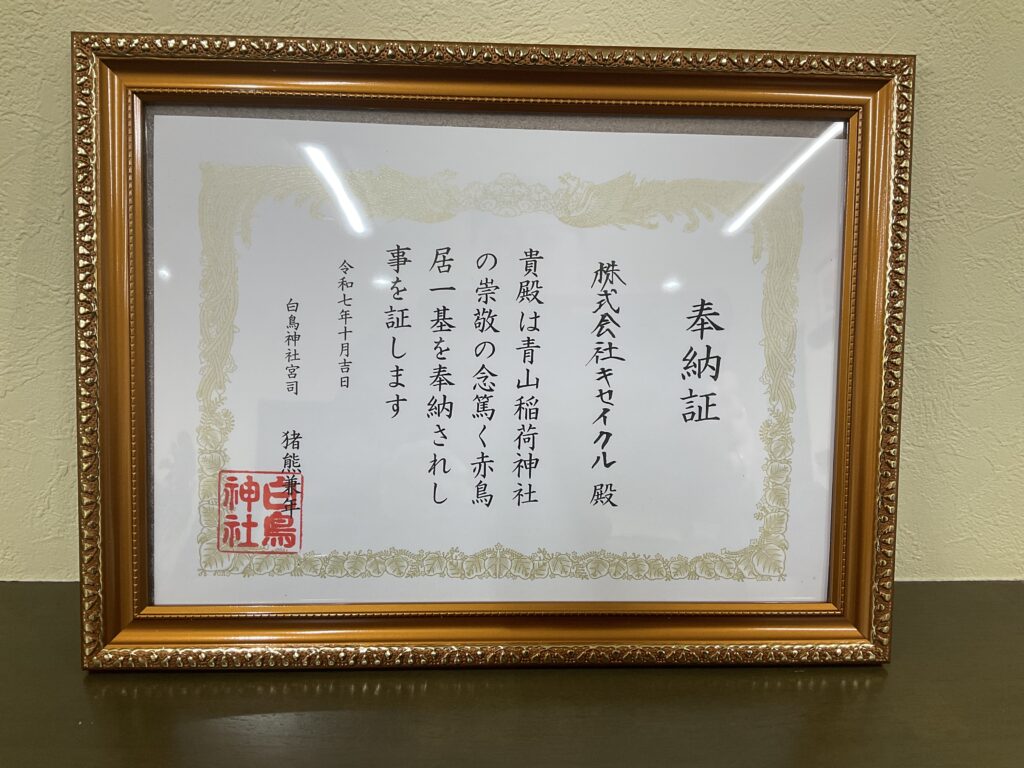 奉納証
株式会社キセイクル 殿
貴殿は青山稲荷神社
の崇敬の念篤く赤鳥
居一基を奉納されし
事を証します
令和七年十月吉日
白鳥神社宮司 猪熊兼年
白鳥
神社